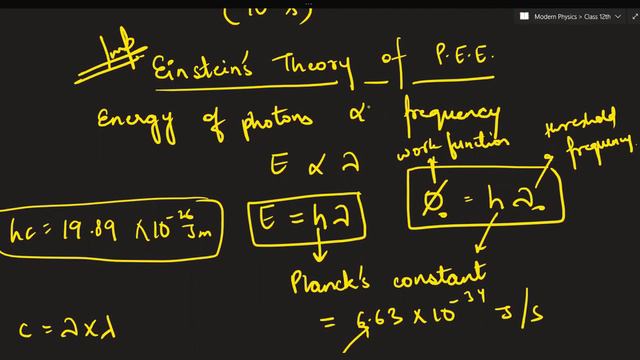 (10⁻⁹ s)
Modern Physics > Class 12th
Imp
Einstein's Theory of P.E.E.
Energy of photons ∝ frequency
work function
threshold frequency
E ∝ ν
hc = 19.89 × 10⁻²⁶ Jm
E = hν
ϕ₀ = hν₀
Planck's constant
= 6.63 × 10⁻³⁴ J/s
c = ν × λ